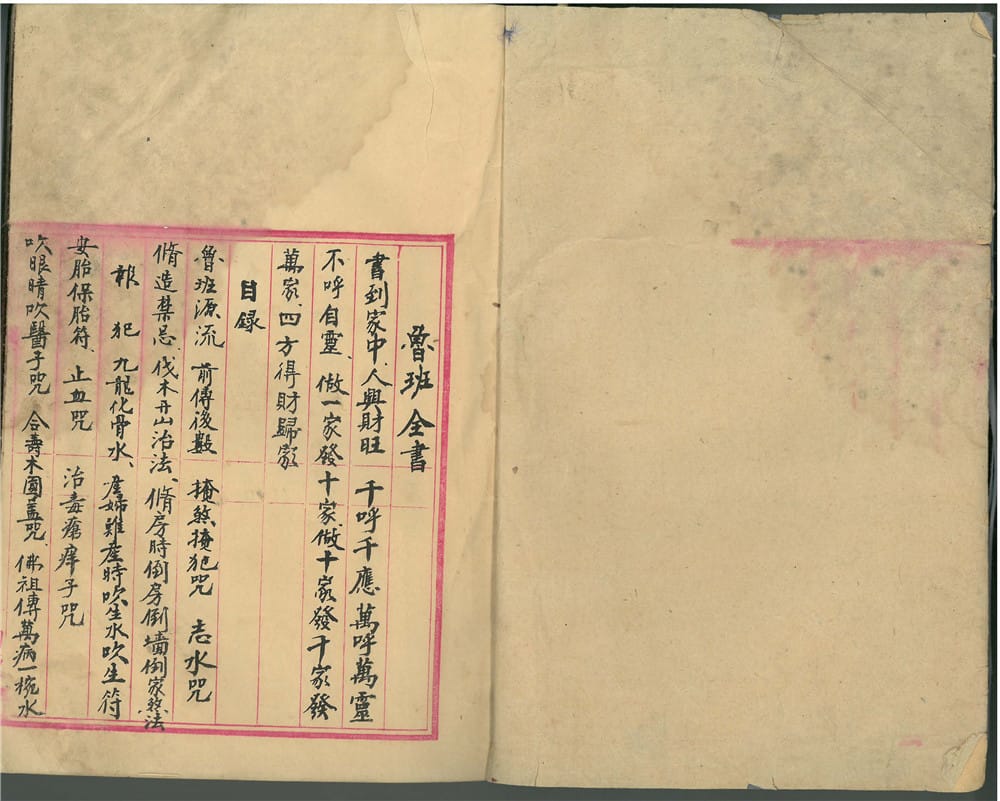 魯班全書
書到家中、人與財旺 千呼千應 萬呼萬靈
不呼自靈、做一家發十家、做十家發千家發
萬家、四方得財歸家
目録
魯班源流 前傳後數 掩煞掩犯咒 志水咒
脩造禁忌、伐木丹山治法、脩房時倒房倒墻倒家煞法
報犯 九龍化骨水、產婦難產時吹生水吹生符
安胎保胎符、止血咒 治毒瘡痒子咒
吹眼睛吹醫子咒 合壽木圓蓋咒、佛祖傳萬病一椀水